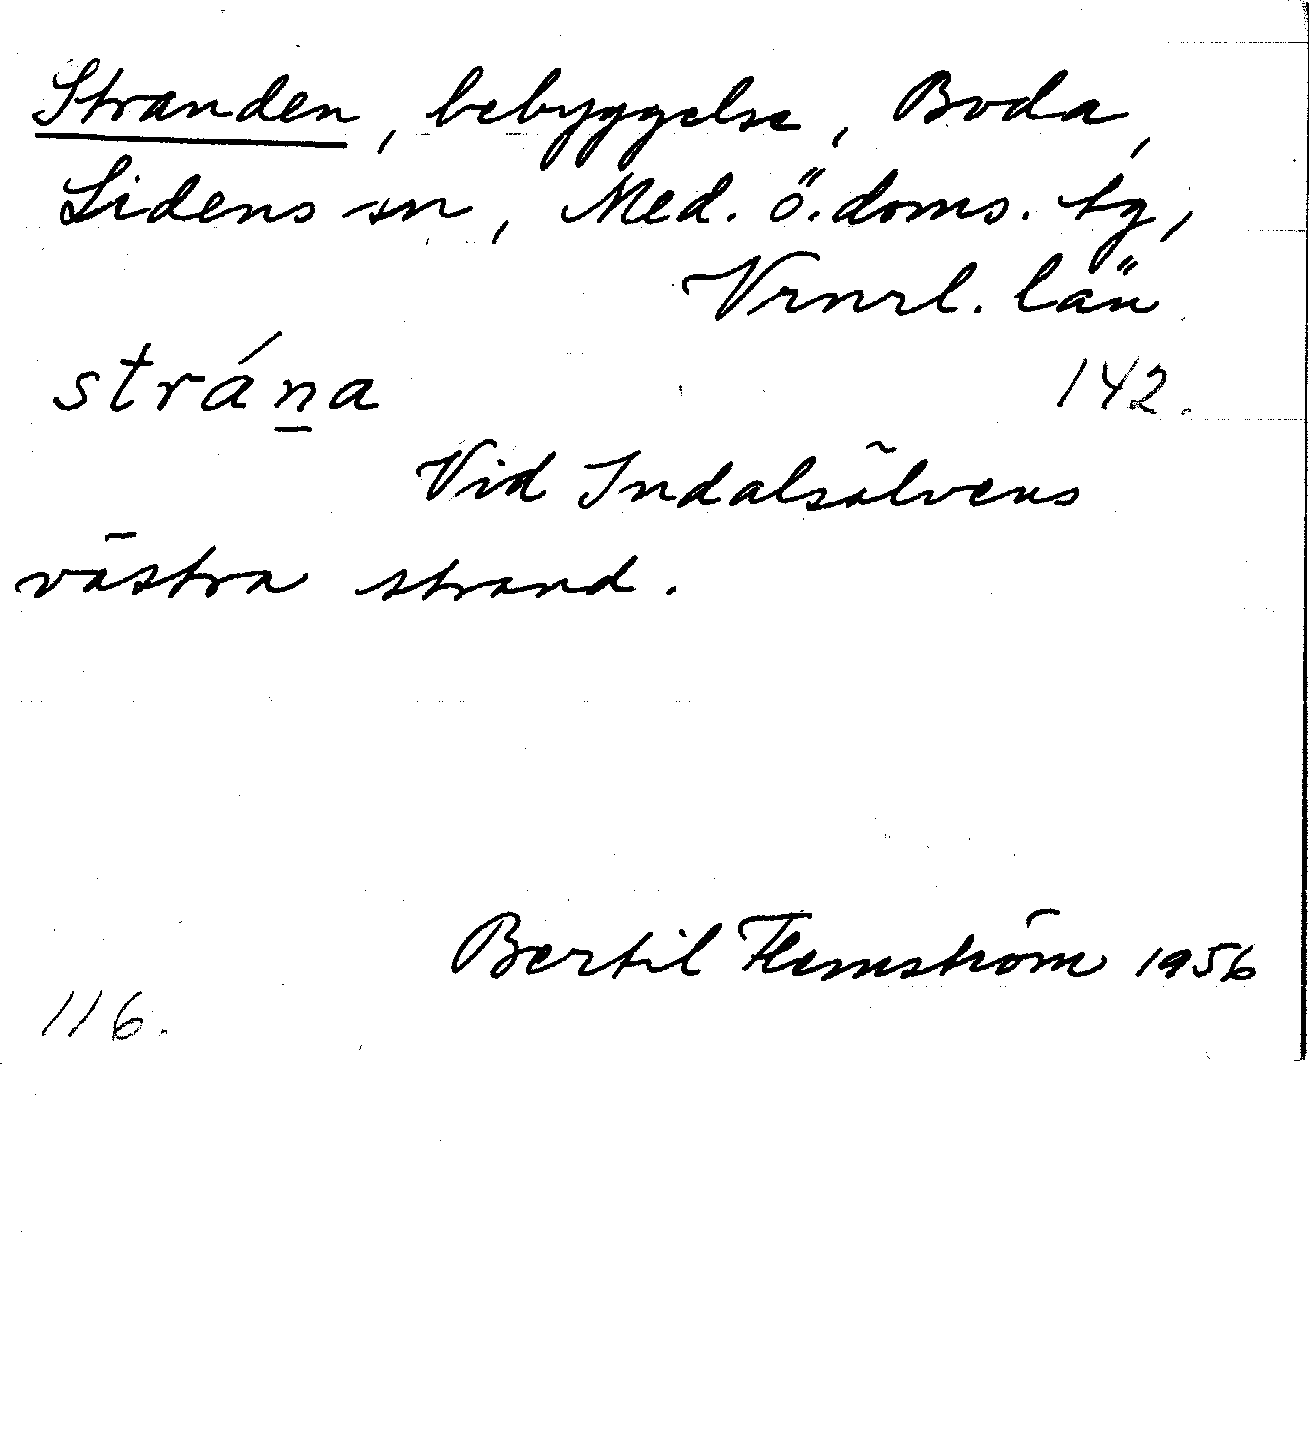 Stranden, bebyggelse, Boda,
Lidens sn, Med. ö. doms. tg,
Vrnrl. län
strána
142.
Vid Indalsälvens
västra strand.
Bertil Flemström 1956
116.